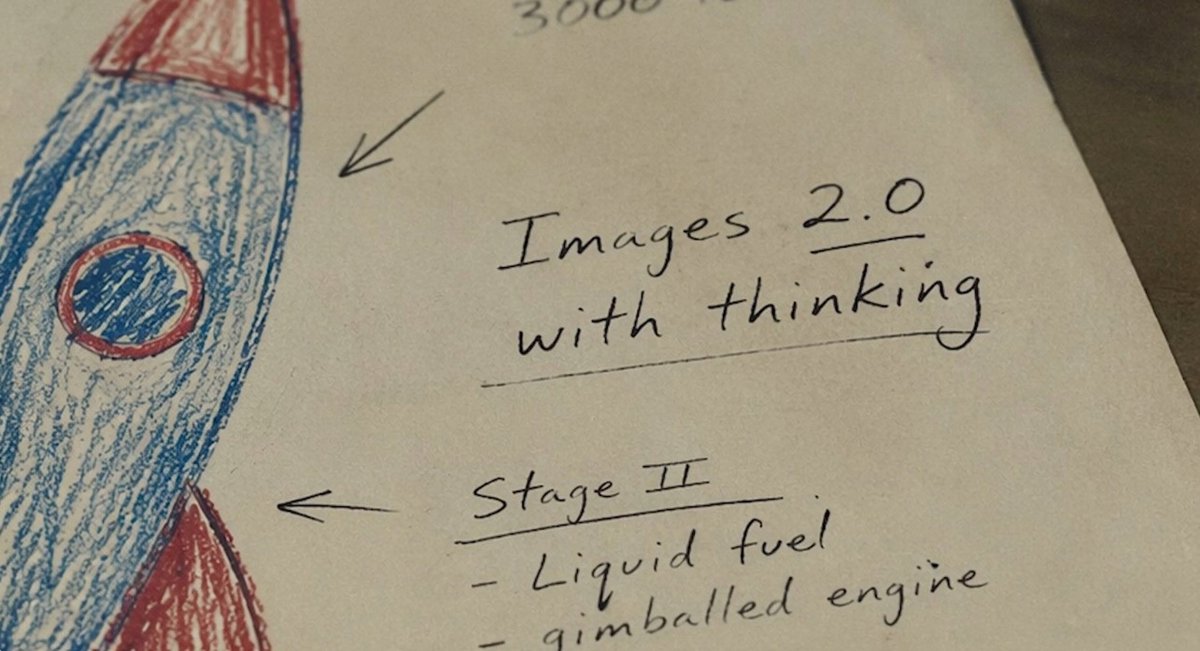 3000
Images 2.0
with thinking
Stage II
- Liquid fuel
- gimballed engine